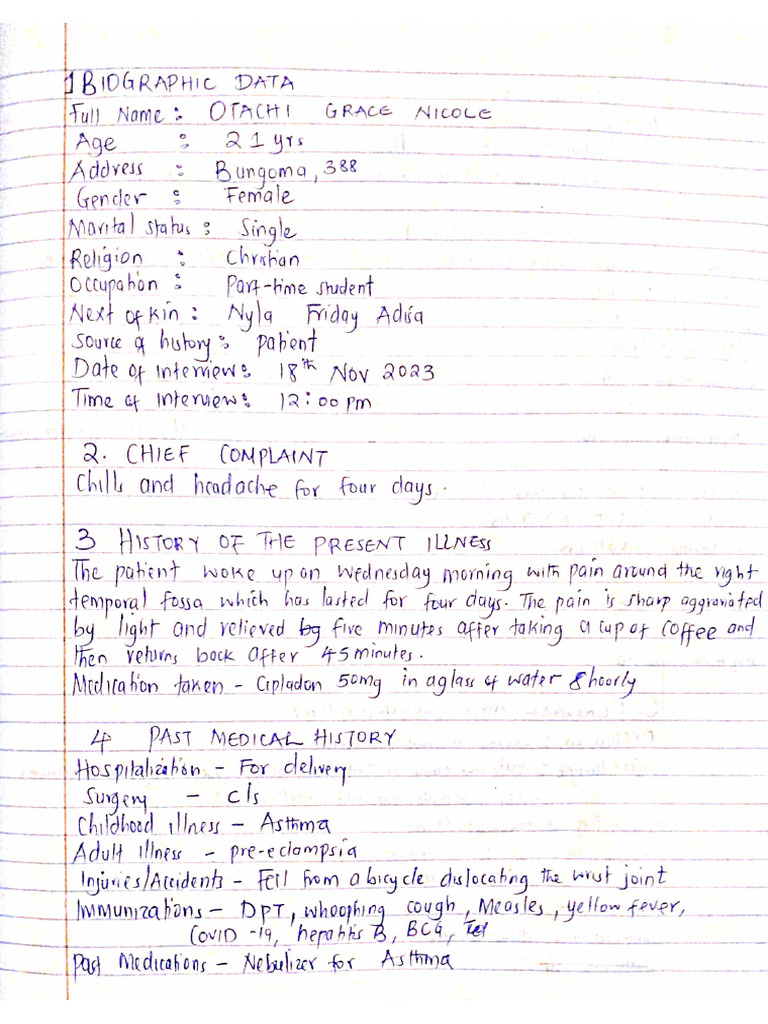 1 BIOGRAPHIC DATA
Full Name : OTACHI GRACE NICOLE
Age : 21 yrs
Address : Bungoma, 388
Gender : Female
Marital status : Single
Religion : Christian
Occupation : Part-time student
Next of kin : Nyla Friday Adisa
Source of history : patient
Date of interview : 18th Nov 2023
Time of interview : 12:00 pm
2. CHIEF COMPLAINT
Chills and headache for four days.
3 HISTORY OF THE PRESENT ILLNESS
The patient woke up on Wednesday morning with pain around the right
temporal fossa which has lasted for four days. The pain is sharp aggravated
by light and relieved by five minutes after taking a cup of coffee and
then returns back after 45 minutes.
Medication taken - Cipladon 50mg in a glass of water 8 hourly
4 PAST MEDICAL HISTORY
Hospitalization - For delivery
Surgery - c/s
Childhood illness - Asthma
Adult illness - pre-eclampsia
Injuries/Accidents - Fell from a bicycle dislocating the wrist joint
Immunizations - DPT, whoophing cough, Measles, yellow fever,
COVID -19, hepatitis B, BCG,
Past Medications - Nebulizer for Asthma